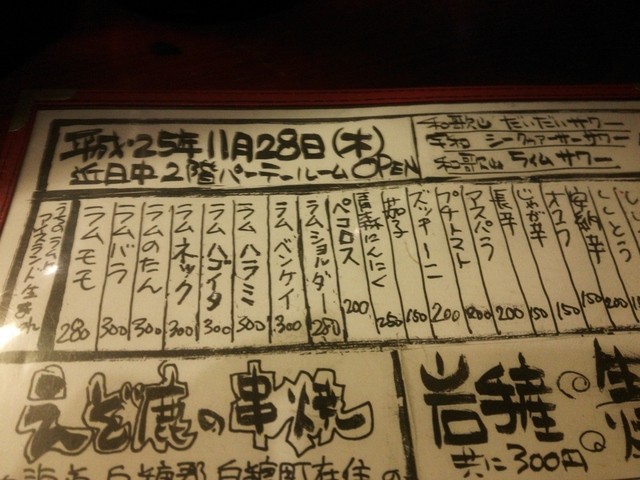 平成25年11月28日(木)
近日中2階パーテールームOPEN
和歌山 だいだいサワー
シークァーサーサワー
和歌山 ライムサワー
しし とう 200
安納芋 150
オクラ 150
じゃが芋 150
長芋 200
アスパラ 200
プチトマト 200
ズッキーニ 150
茄子 250
青森にんにく
ペコロス 200
ラムショルダー 280
ラムベンケイ 300
ラムハラミ 300
ラムハゴイタ 300
ラムネック 300
ラムのたん 300
ラムバラ 300
ラムモモ 280
アイスランド生まれ
えぞ鹿の串焼
白糠郡白糠町在住の
岩手産
共に300円